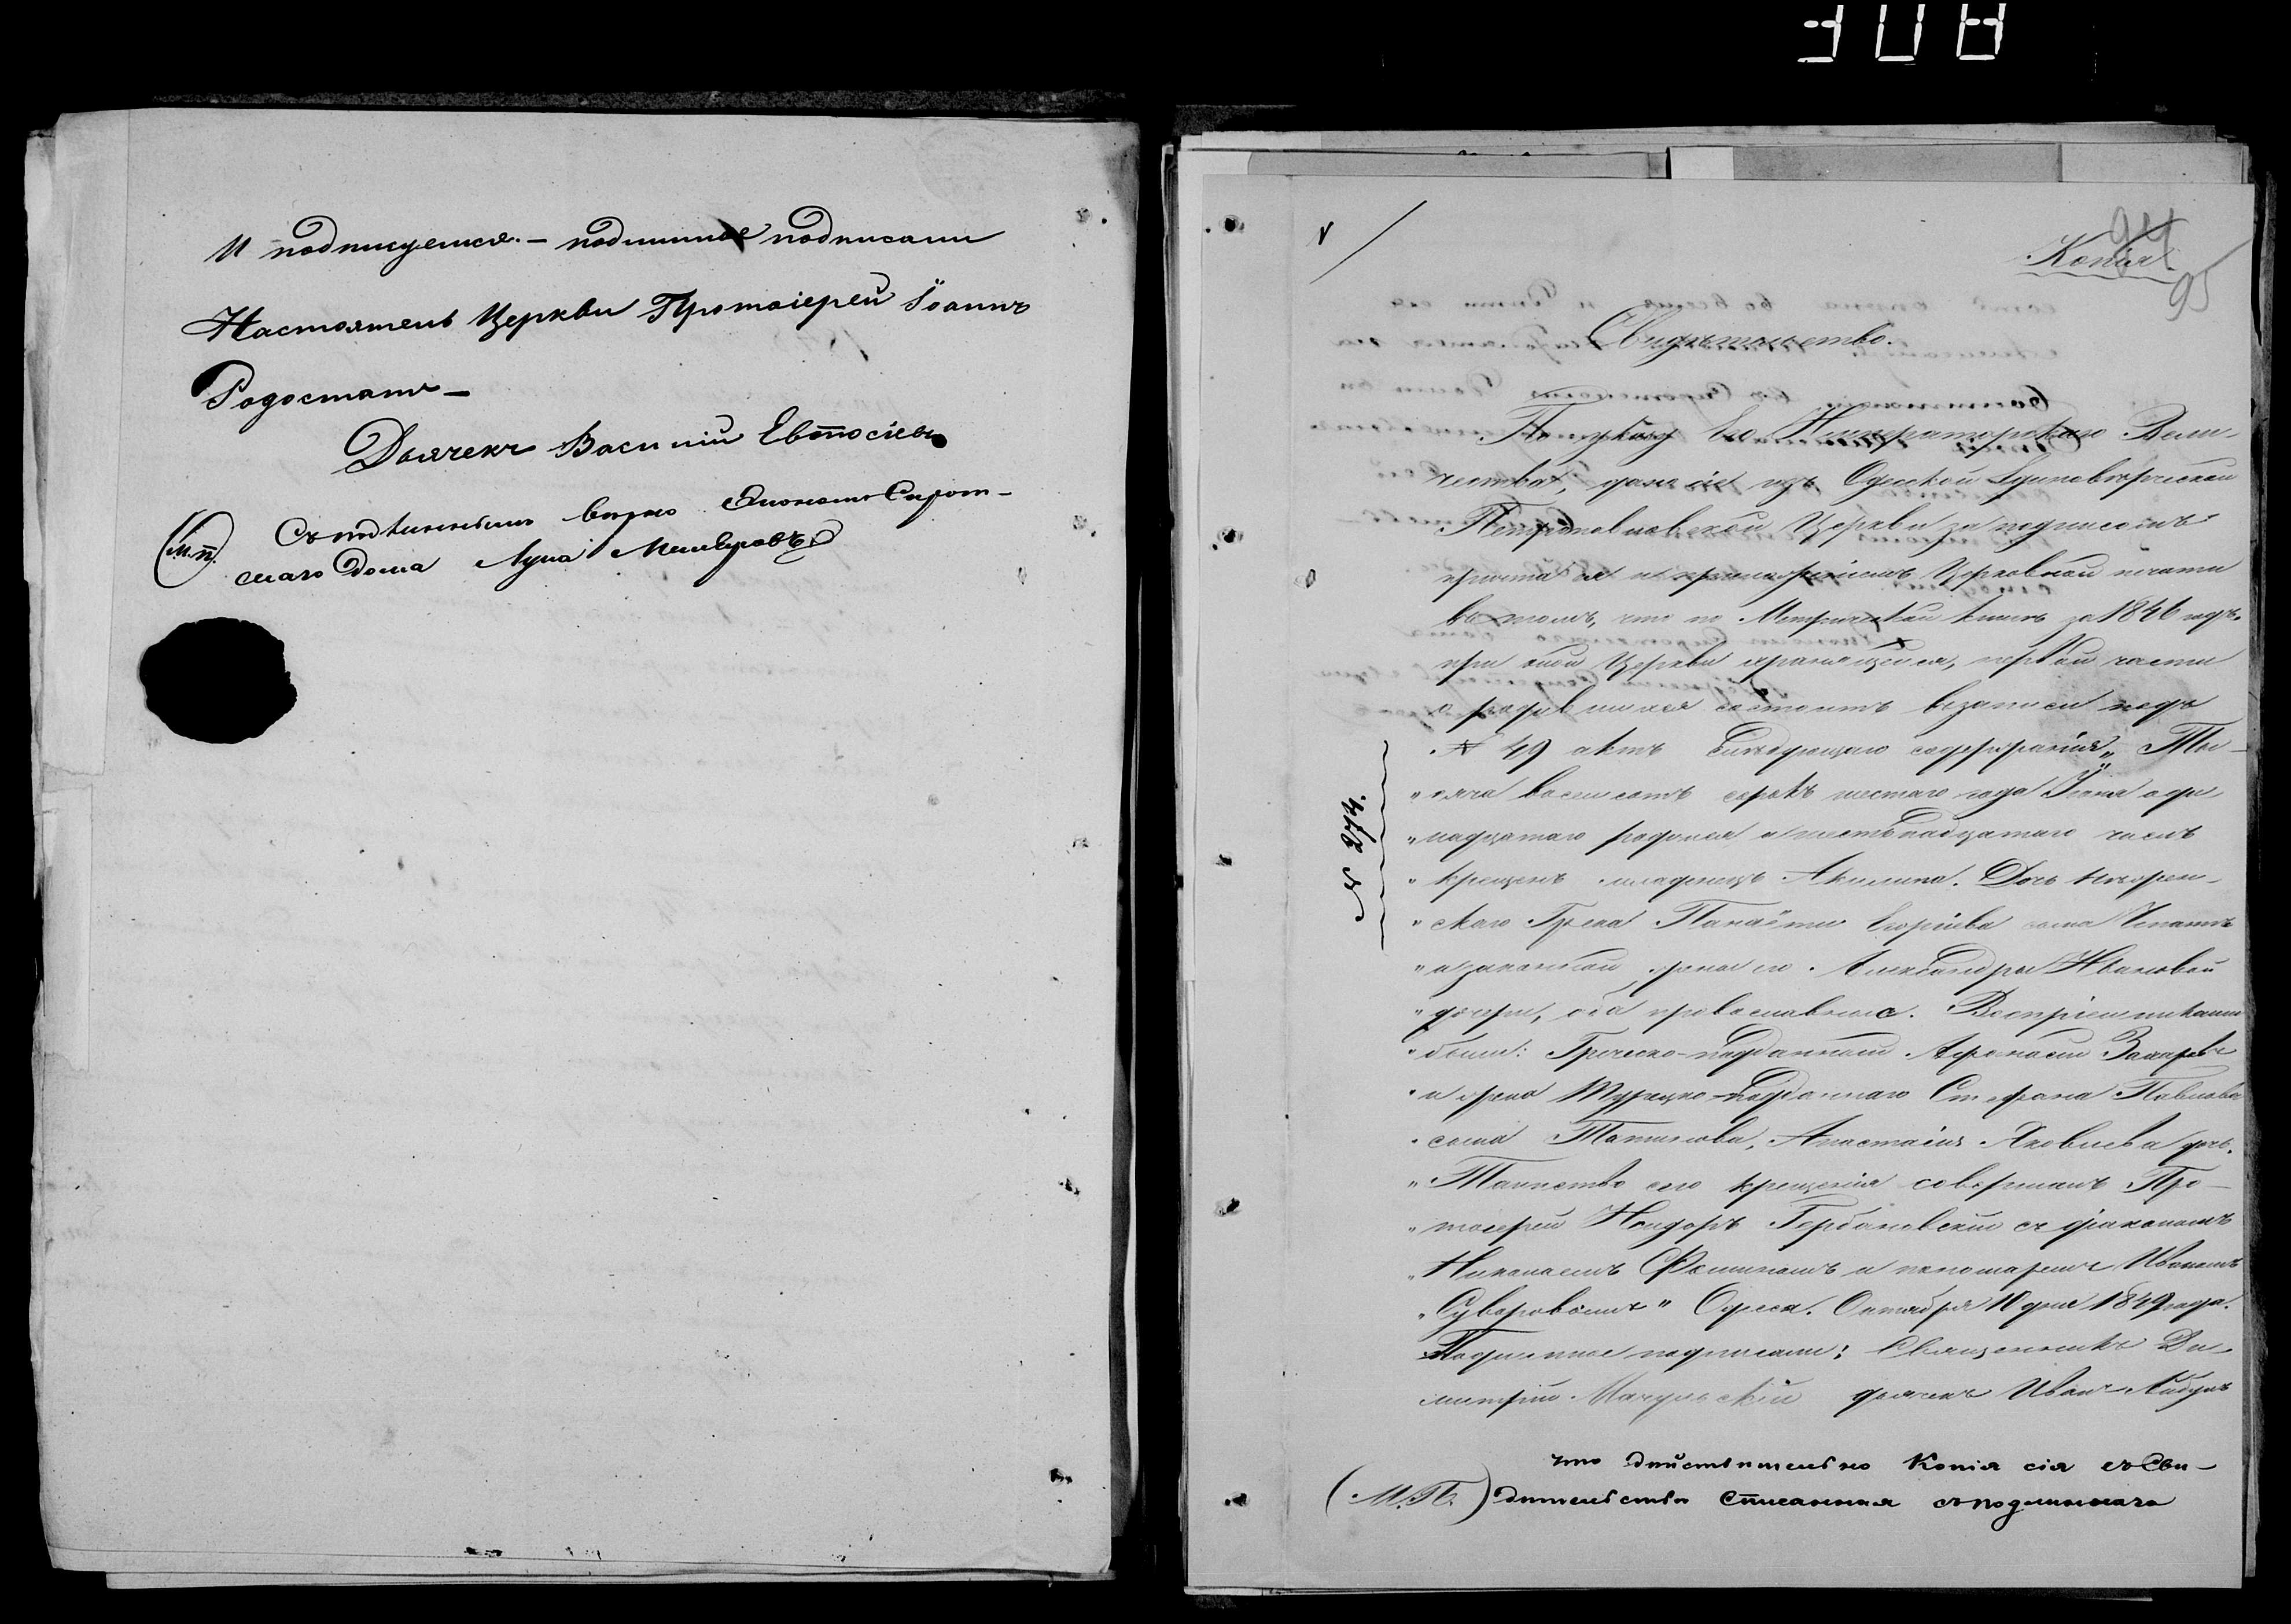 308
И подписуемся. – подлинное подписали
Настоятель Церкви Протоіерей Іоаннъ
Родостатъ –
Дьячекъ Василій Евтосіевъ
(М.П.) Съ подлиннымъ верно Экономъ Сирот-
скаго Дома Лука
94
Копія
95
Свидѣтельство.
По указу Его Императорскаго Вели-
чества, дано сіе изъ Одеской Единовѣрческой
Петропавловской Церкви за подписомъ
причта ея и приложеніемъ Церковной печати
въ томъ, что по Метрической книгѣ за 1846 годъ,
при оной Церкви хранящейся, первой части
о родившихся состоитъ въ записи подъ
№ 49 актъ слѣдующаго содержанія: „Ты-
„сяча восемсотъ сорокъ шестаго года Іюня оди
„надцатаго родился а шестьнадцатаго числъ
„крещенъ младенецъ Акилина. Дочь
„скаго Грека Панаіоти Егоріева сына
„и законной жены его Александры Ивановой
„дочери, оба православные. Воспріемниками
„были: Греческо-подданный Афанасій Захаровъ
„и жена Турецко-подданнаго Стефана Павлова
„сына Анастасія Яковлева дочь.
„Таинство сего крещенія совершалъ Про-
„тоіерей Горбановскій съ діакономъ
„Николаемъ Фоминымъ и пономаремъ Иваномъ
„Суворовымъ" Одесса. Октября 10 дня 1849 года.
Подлинное подписали: Священникъ Ди-
митрій Мачульскій дьячекъ Иванъ
№ 274
что дѣйствительно Копія сія съ Сви-
(М.П.) дѣтельства Списанная съ подлиннаго